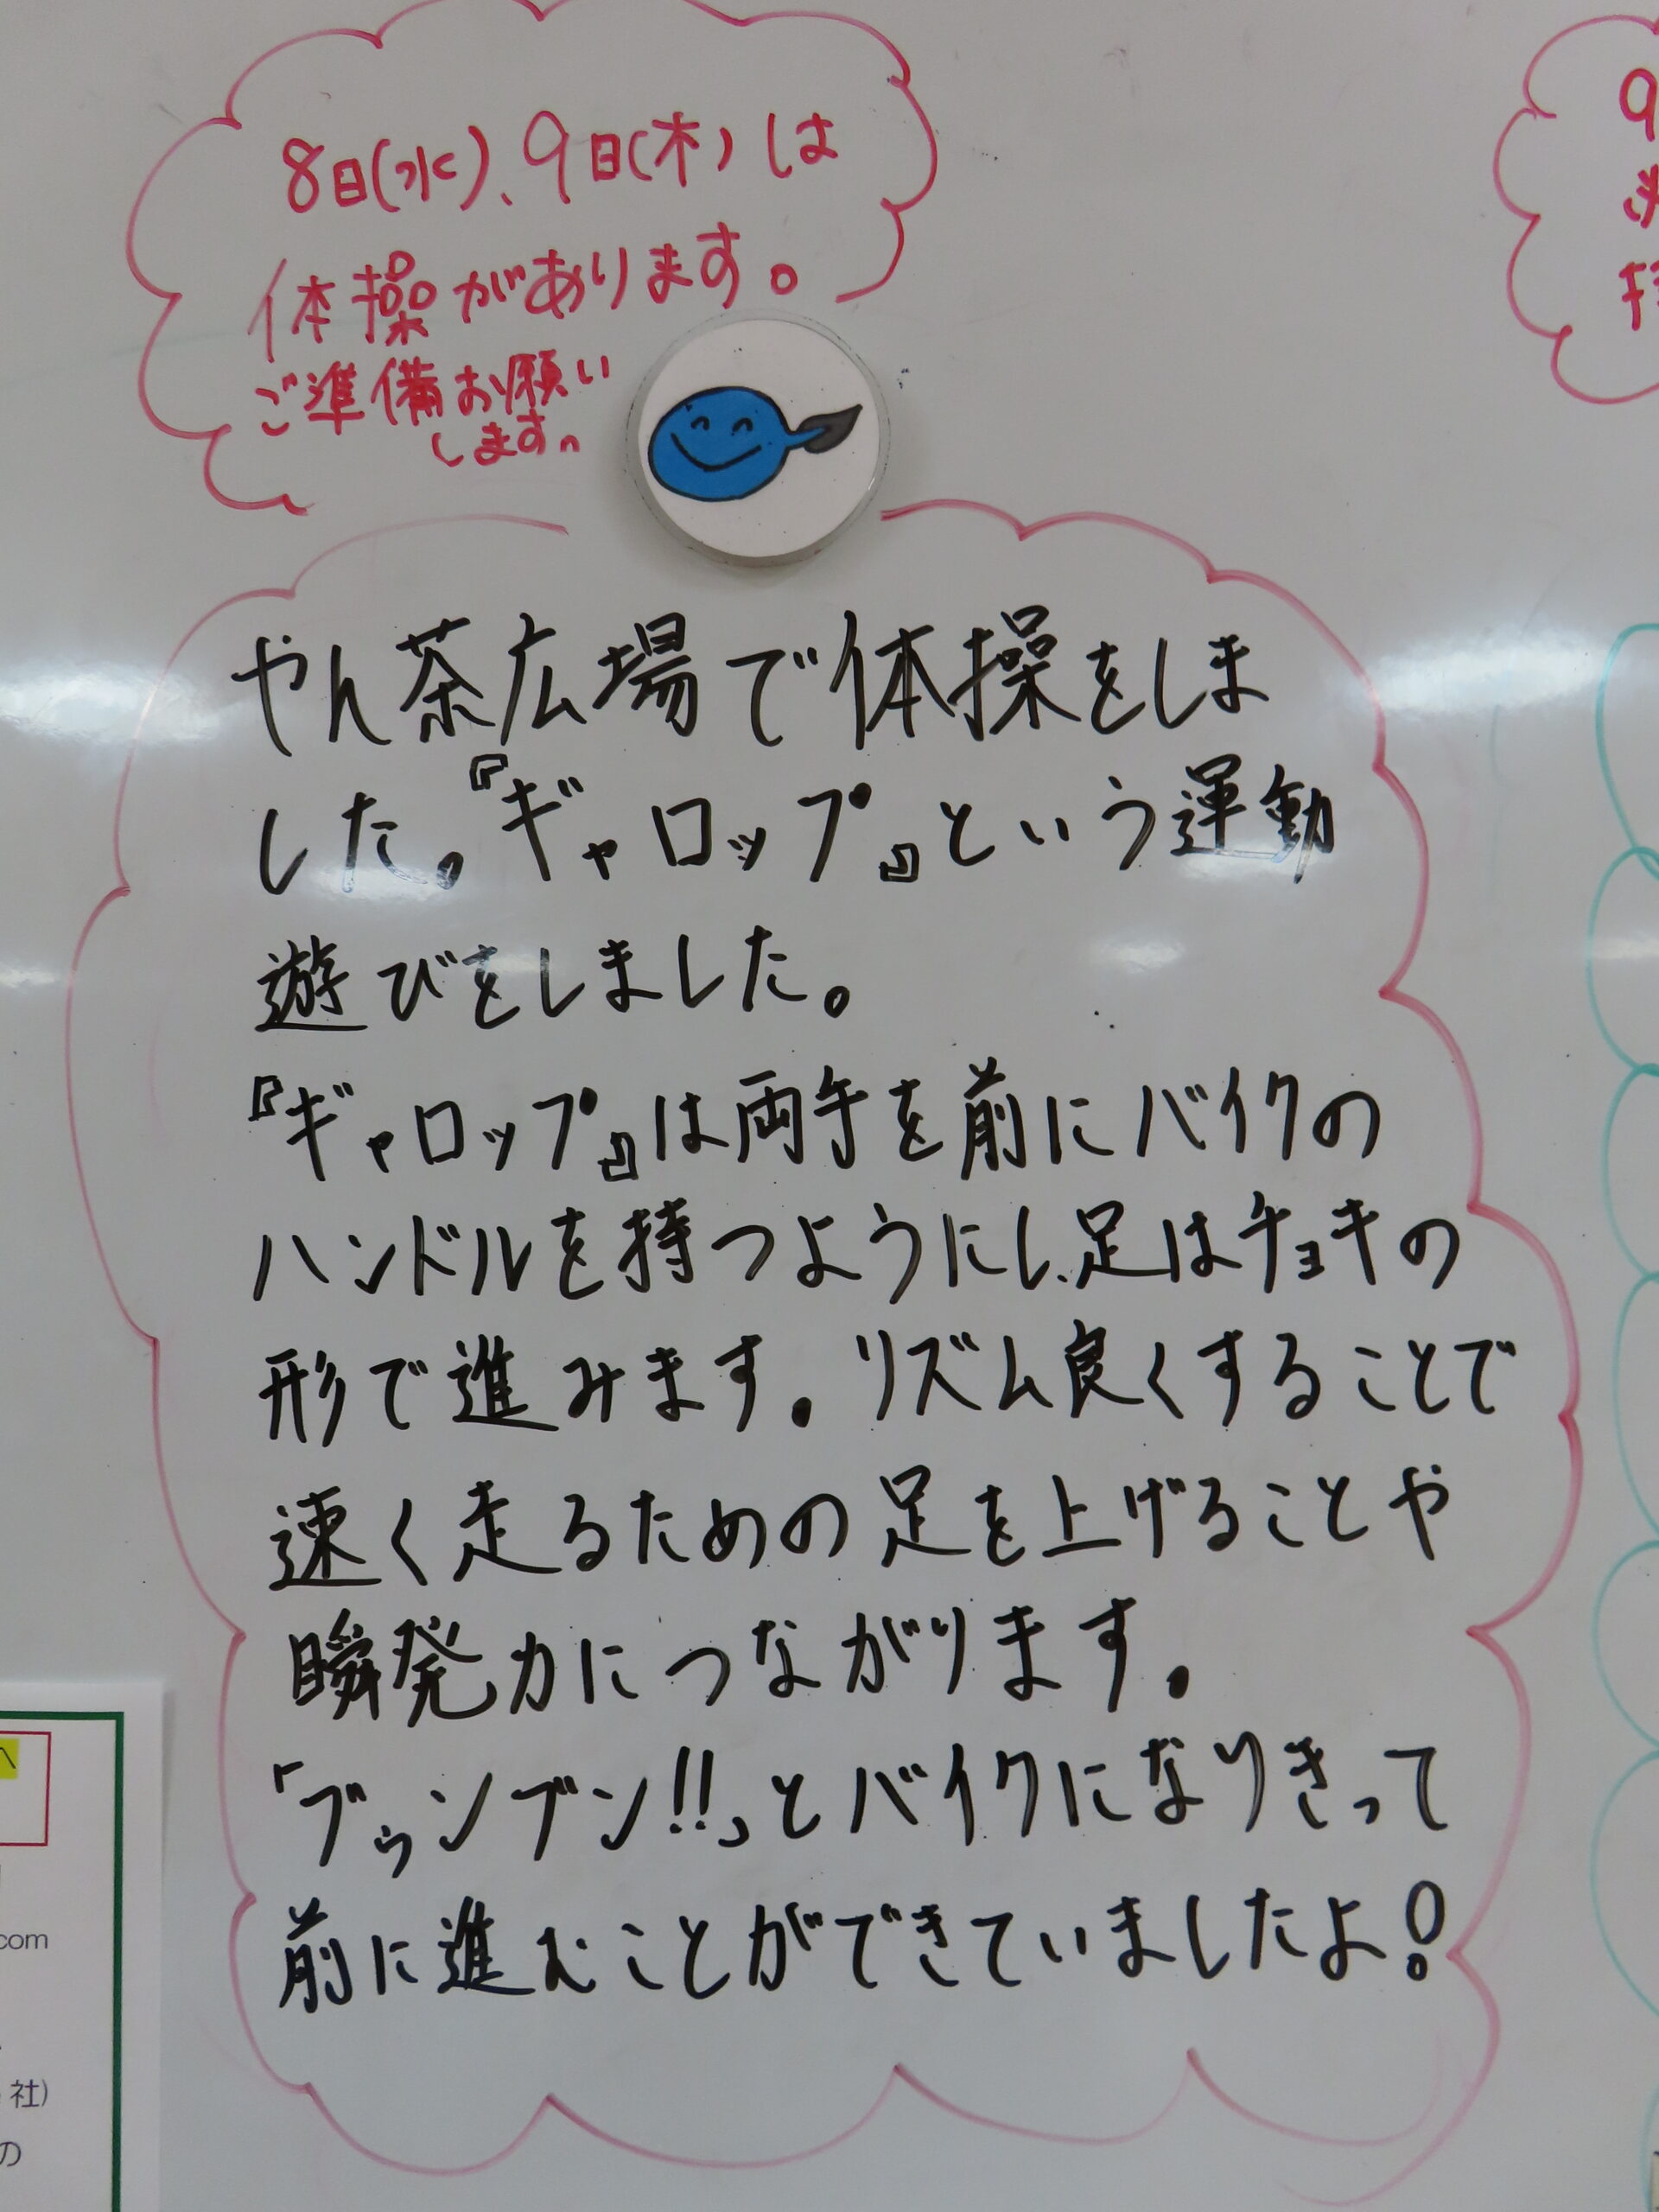 8日(水)、9日(木)は
体操があります。
ご準備お願い
します。
やん茶広場で体操をしま
した。『ギャロップ』という運動
遊びをしました。
『ギャロップ』は両手を前にバイクの
ハンドルを持つようにし、足はチョキの
形で進みます。リズム良くすることで
速く走るための足を上げることや
瞬発力につながります。
「ブゥンブン!!」とバイクになりきって
前に進むことができていましたよ!
9
com
社)
の